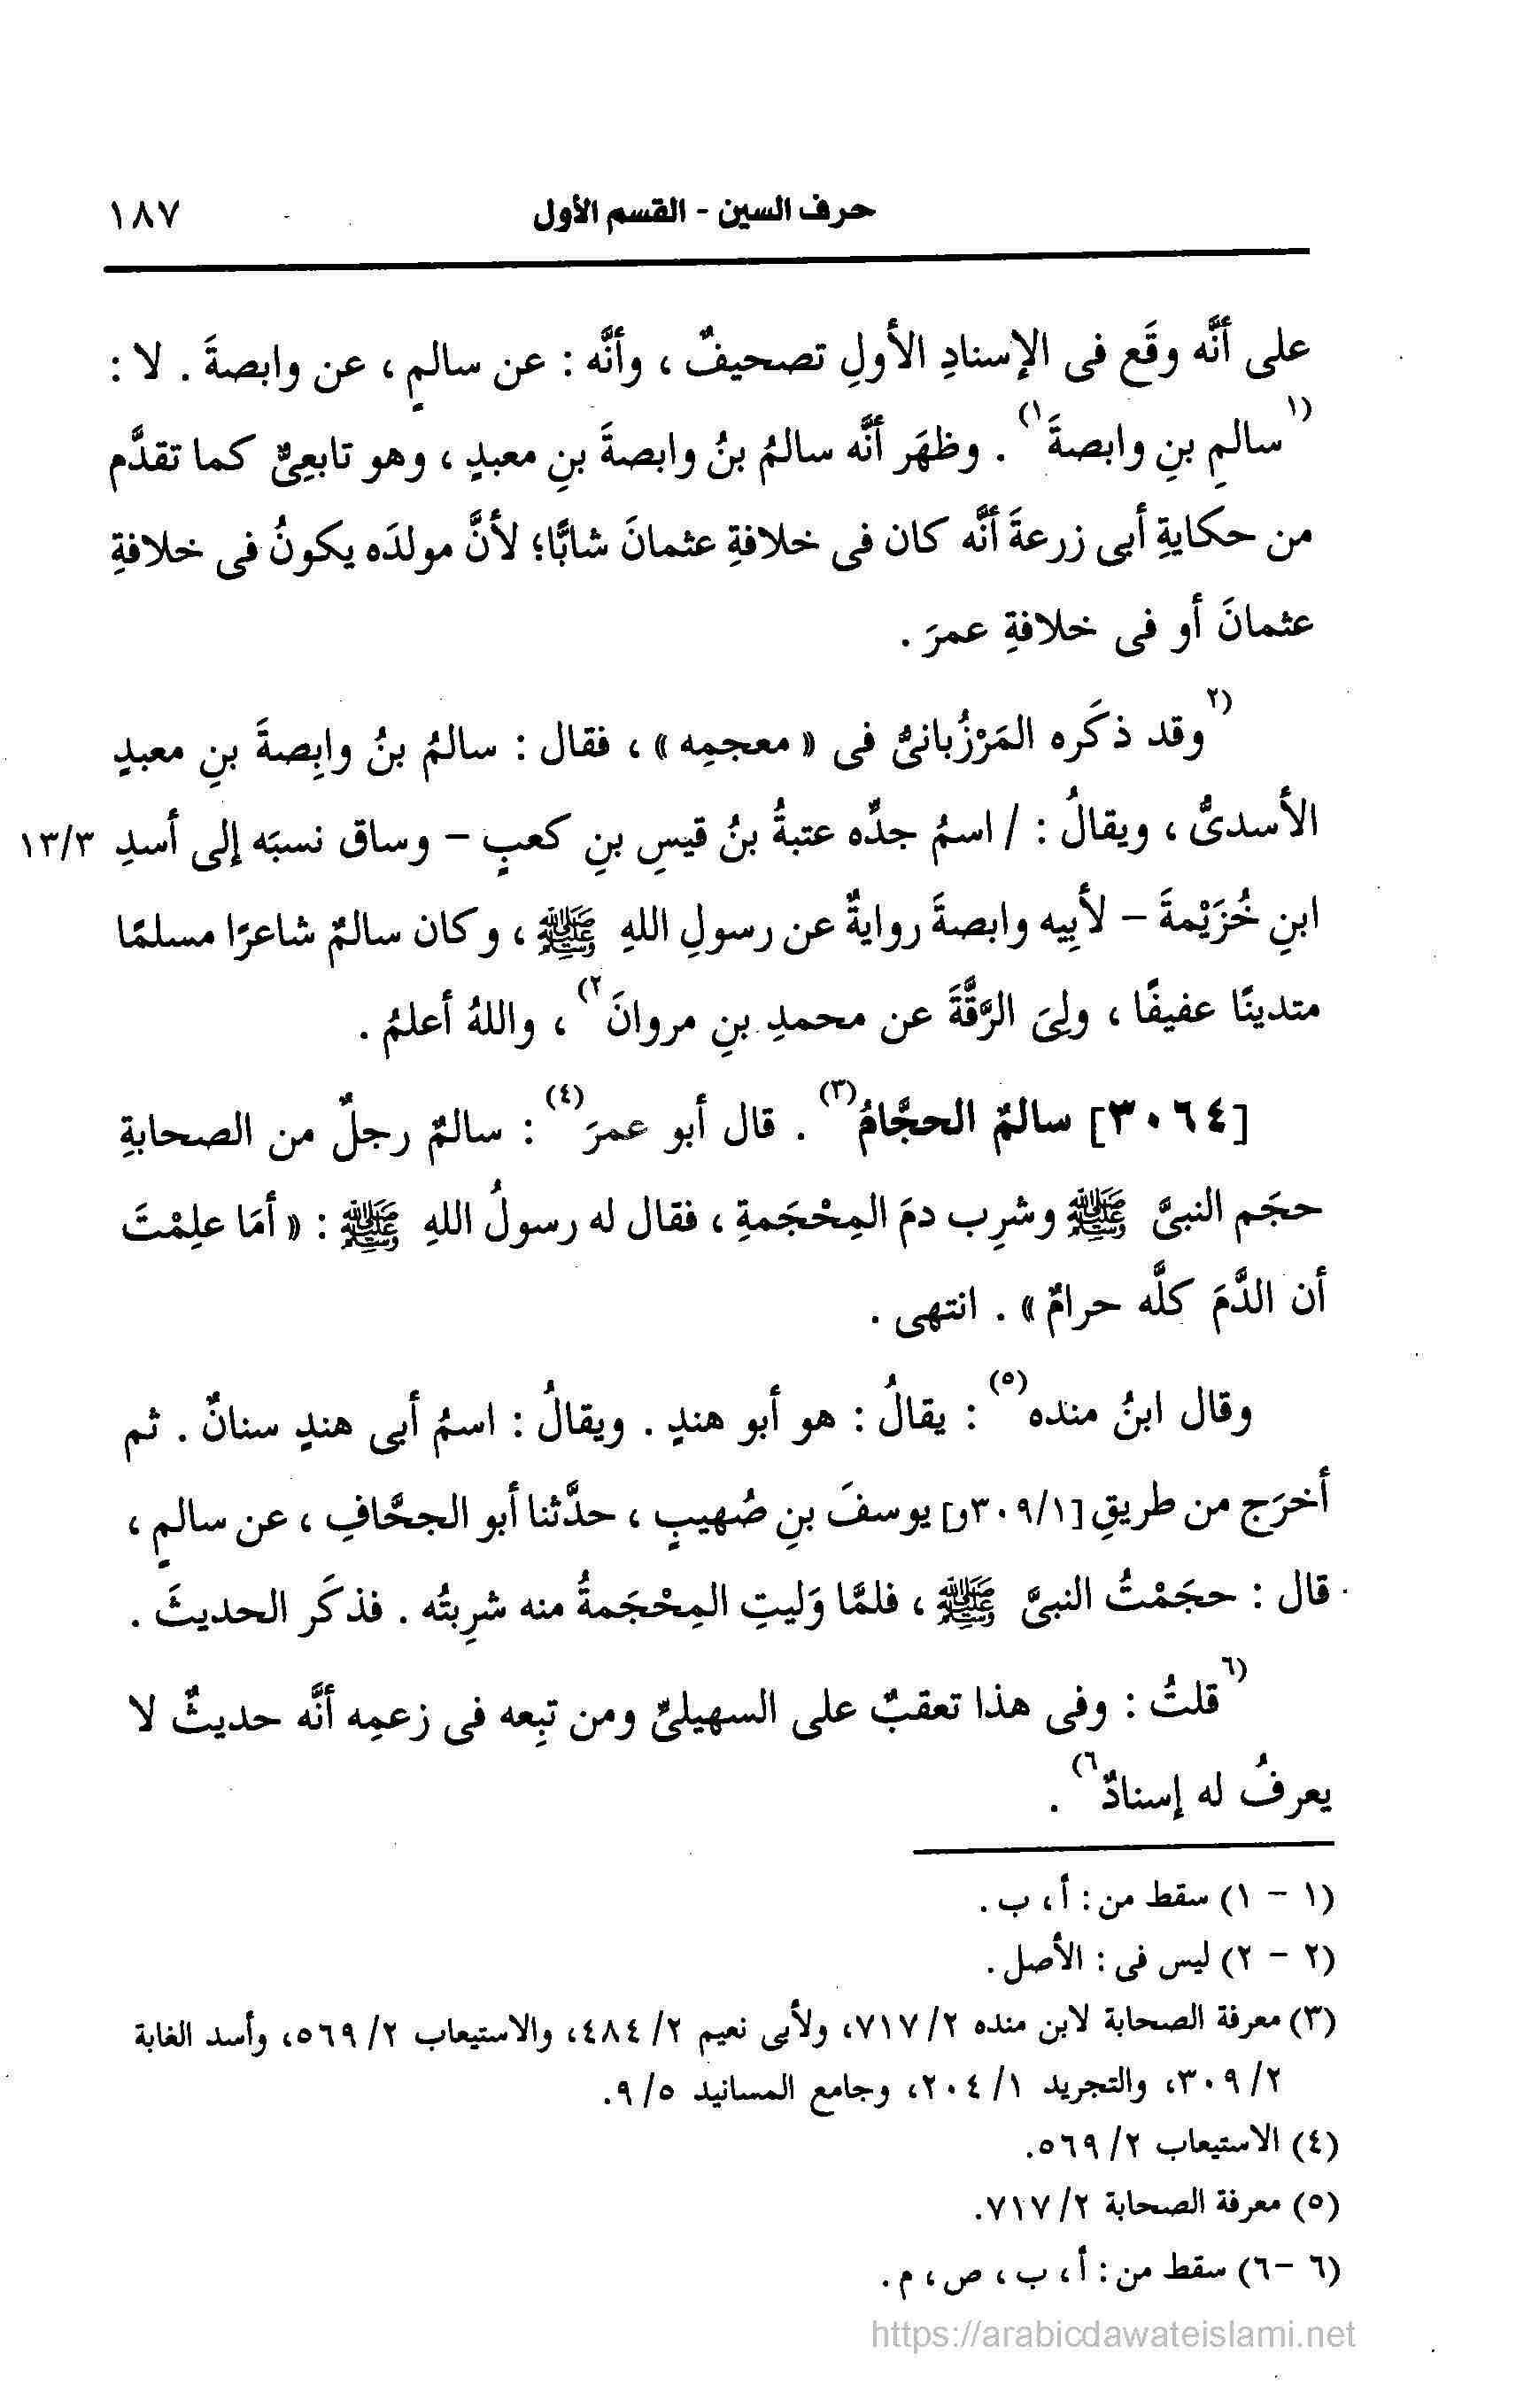 حرف السين - القسم الأول ١٨٧
على أنَّه وقَع فى الإسنادِ الأولِ تصحيفٌ ، وأنَّه : عن سالمٍ ، عن وابصةَ . لا :
(١سالمِ بنِ وابصةَ١) . وظهَر أنَّه سالمُ بنُ وابصةَ بنِ معبدٍ ، وهو تابعىٌّ كما تقدَّم
من حكايةِ أبى زرعةَ أنَّه كان فى خلافةِ عثمانَ شابًّا؛ لأنَّ مولدَه يكونُ فى خلافةِ
عثمانَ أو فى خلافةِ عمرَ .
(٢وقد ذكَره المَرْزُبانىُّ فى « معجمِه » ، فقال : سالمُ بنُ وابِصةَ بنِ معبدٍ
الأسدىُّ ، ويقالُ : / اسمُ جدِّه عتبةُ بنُ قيسِ بنِ كعبٍ – وساق نسبَه إلى أسدِ ١٣/٣
ابنِ خُزَيْمةَ – لأبِيه وابصةَ روايةٌ عن رسولِ اللهِ ﷺ ، وكان سالمٌ شاعرًا مسلمًا
متدينًا عفيفًا ، ولِىَ الرَّقَّةَ عن محمدِ بنِ مروانَ٢) ، واللهُ أعلمُ .
[٣٠٦٤] سالمٌ الحجَّامُ(٣) . قال أبو عمرَ(٤) : سالمٌ رجلٌ من الصحابةِ
حجَم النبىَّ ﷺ وشرِب دمَ المِحْجَمةِ ، فقال له رسولُ اللهِ ﷺ : « أمَا علِمْتَ
أن الدَّمَ كلَّه حرامٌ » . انتهى .
وقال ابنُ منده(٥) : يقالُ : هو أبو هندٍ . ويقالُ : اسمُ أبى هندٍ سنانٌ . ثم
أخرَج من طريقِ [٣٠٩/١و] يوسفَ بنِ صُهيبٍ ، حدَّثنا أبو الجحَّافِ ، عن سالمٍ ،
قال : حجَمْتُ النبىَّ ﷺ ، فلمَّا وَليتِ المِحْجَمةُ منه شرِبتُه . فذكَر الحديثَ .
(٦قلتُ : وفى هذا تعقبٌ على السهيلىِّ ومن تبِعه فى زعمِه أنَّه حديثٌ لا
يعرفُ له إسنادٌ٦) .
(١ – ١) سقط من : أ ، ب .
(٢ – ٢) ليس فى : الأصل .
(٣) معرفة الصحابة لابن منده ٢/ ٧١٧، ولأبى نعيم ٢/ ٤٨٤، والاستيعاب ٢/ ٥٦٩، وأسد الغابة
٢/ ٣٠٩، والتجريد ١/ ٢٠٤، وجامع المسانيد ٥/ ٩.
(٤) الاستيعاب ٢/ ٥٦٩.
(٥) معرفة الصحابة ٢/ ٧١٧.
(٦ –٦) سقط من : أ ، ب ، ص ، م .
https://arabicdawateislami.net